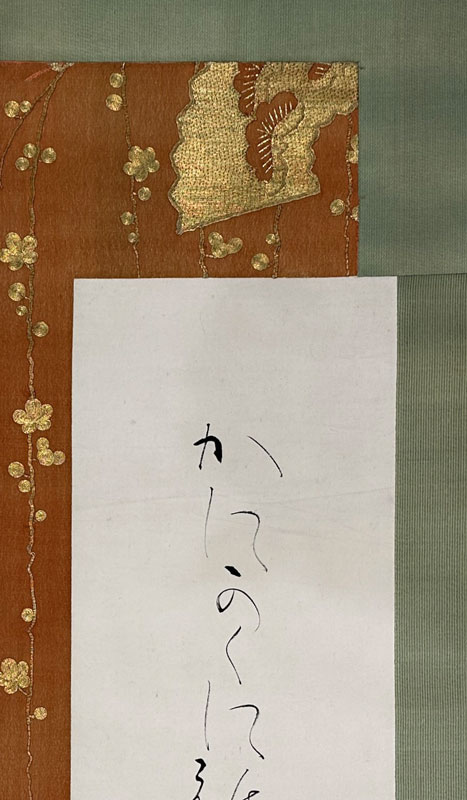 かにかくに